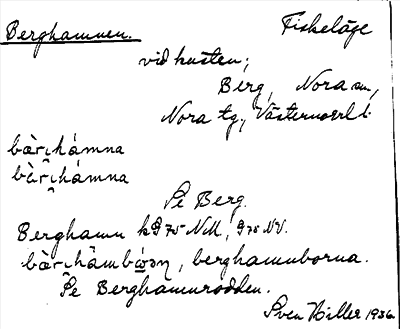 Berghamnen. Fiskeläge
vid kusten;
Berg, Nora sn,
Nora tg., Västernorrl. l.
bàrₜhámna
bàrₜhámna
Pe Berg.
Berghamn k975 NM, 975 NV.
berghamnborna.
Pe Berghamnrodden.
Sven Hiller 1936.